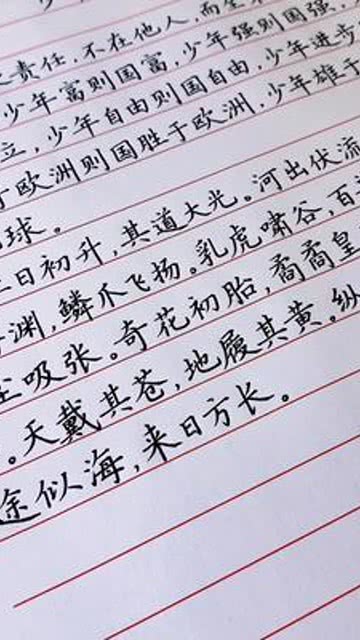 责任，不在他人，而全
少年富则国富，少年强则国强，
立，少年自由则国自由，少年进步
于欧洲则国胜于欧洲，少年雄于
球。
日初升，其道大光。河出伏流
渊，鳞爪飞扬。乳虎啸谷，百
吸张。奇花初胎，矞矞皇
。天戴其苍，地履其黄。纵
途似海，来日方长。